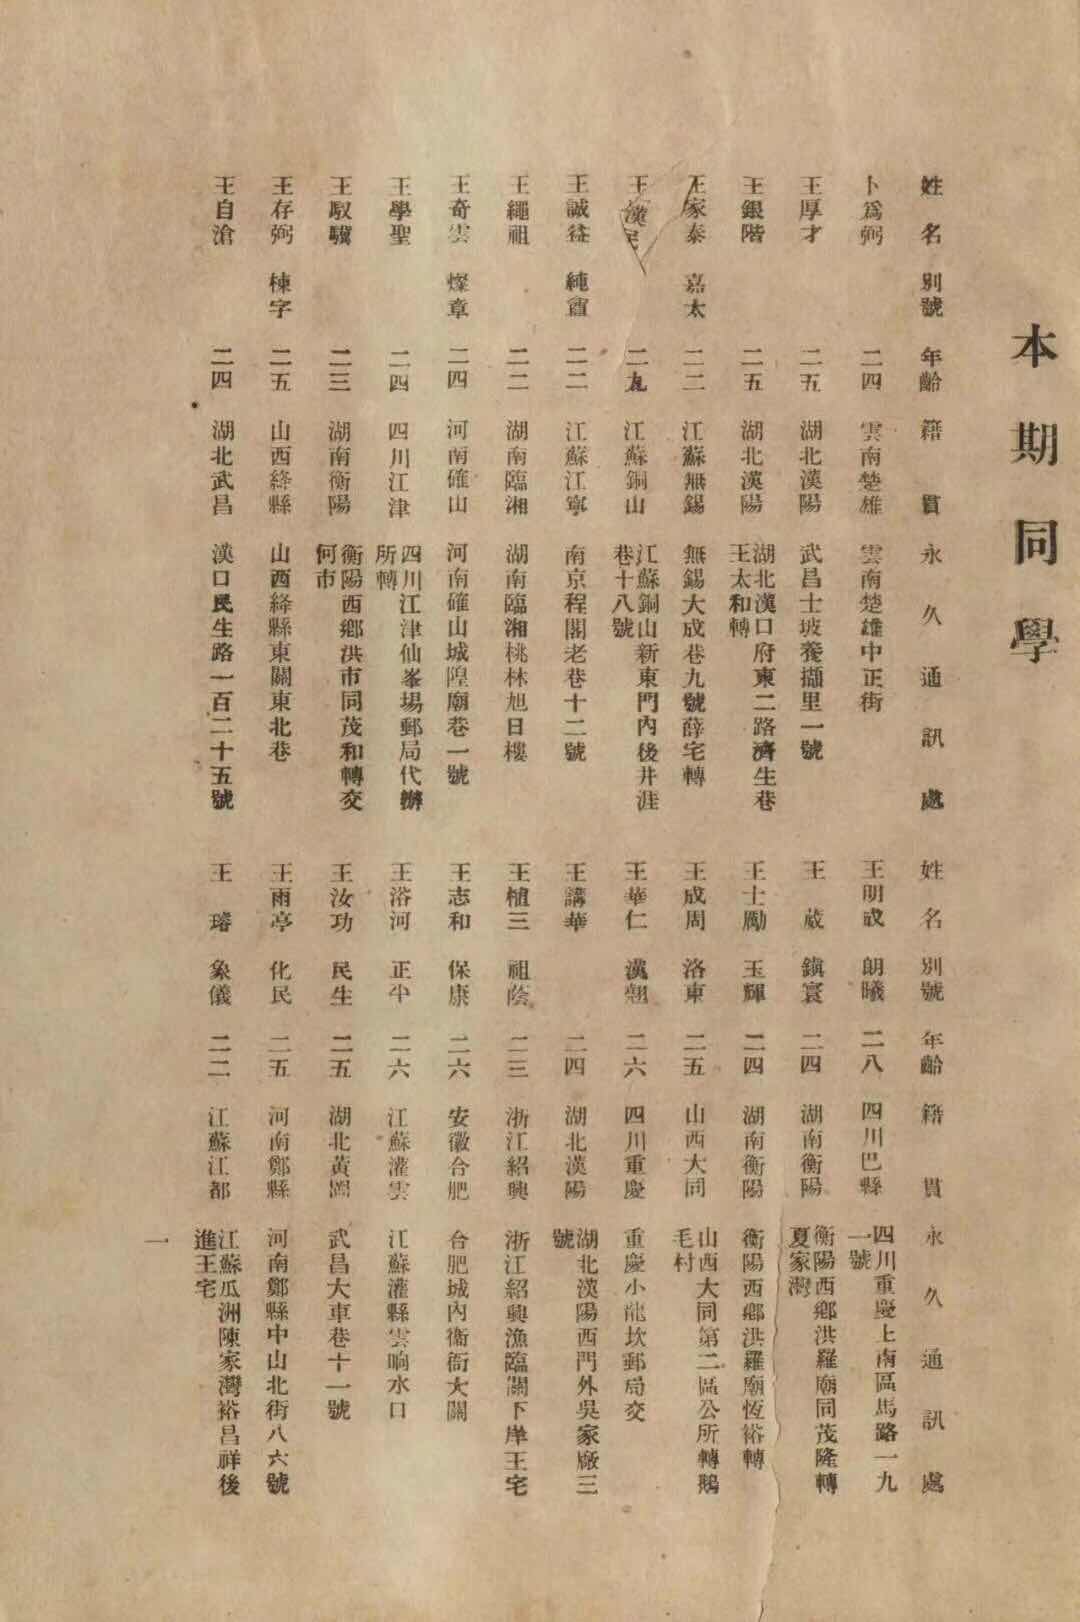 本期同學
姓名 別號 年齡 籍貫 永久通訊處
卜爲弼 二四 雲南楚雄 雲南楚雄中正街
王厚才 二五 湖北漢陽 武昌士坡養擷里一號
王銀階 二五 湖北漢陽 湖北漢口府東二路濟生巷
王太和轉
王家泰 嘉太 二二 江蘇無錫 無錫大成巷九號薛宅轉
王漢民 二九 江蘇銅山 江蘇銅山新東門內後井涯
巷十八號
王誠 純 二二 江蘇江寧 南京程閣老巷十二號
王繩祖 二二 湖南臨湘 湖南臨湘桃林旭日樓
王奇雲 燦章 二四 河南確山 河南確山城隍廟巷一號
王學聖 二四 四川江津 四川江津仙峯場郵局代辦
所轉
王馭驥 二三 湖南衡陽 衡陽西鄉洪市同茂和轉交
何市
王存弼 棟字 二五 山西絳縣 山西絳縣東關東北巷
王自滄 二四 湖北武昌 漢口民生路一百二十五號
姓名 別號 年齡 籍貫 永久通訊處
王明或 朗曦 二八 四川巴縣 四川重慶上南區馬路一九
一號
王葳 鎭寰 二四 湖南衡陽 衡陽西鄉洪羅廟同茂隆轉
夏家灣
王士勵 玉輝 二四 湖南衡陽 衡陽西鄉洪羅廟恆裕轉
王成周 洛東 二五 山西大同 山西大同第二區公所轉鵝
毛村
王華仁 漢翹 二六 四川重慶 重慶小龍坎郵局交
王講華 二四 湖北漢陽 湖北漢陽西門外吳家廠三
號
王植三 祖蔭 二三 浙江紹興 浙江紹興漁臨關下岸王宅
王志和 保康 二六 安徽合肥 合肥城內衞衙大關
王浴河 正半 二六 江蘇灌雲 江蘇灌縣雲响水口
王汝功 民生 二五 湖北黃岡 武昌大車巷十一號
王雨亭 化民 二五 河南鄭縣 河南鄭縣中山北街八六號
王璿 象儀 二二 江蘇江都 江蘇瓜洲陳家灣裕昌祥後
進王宅
一